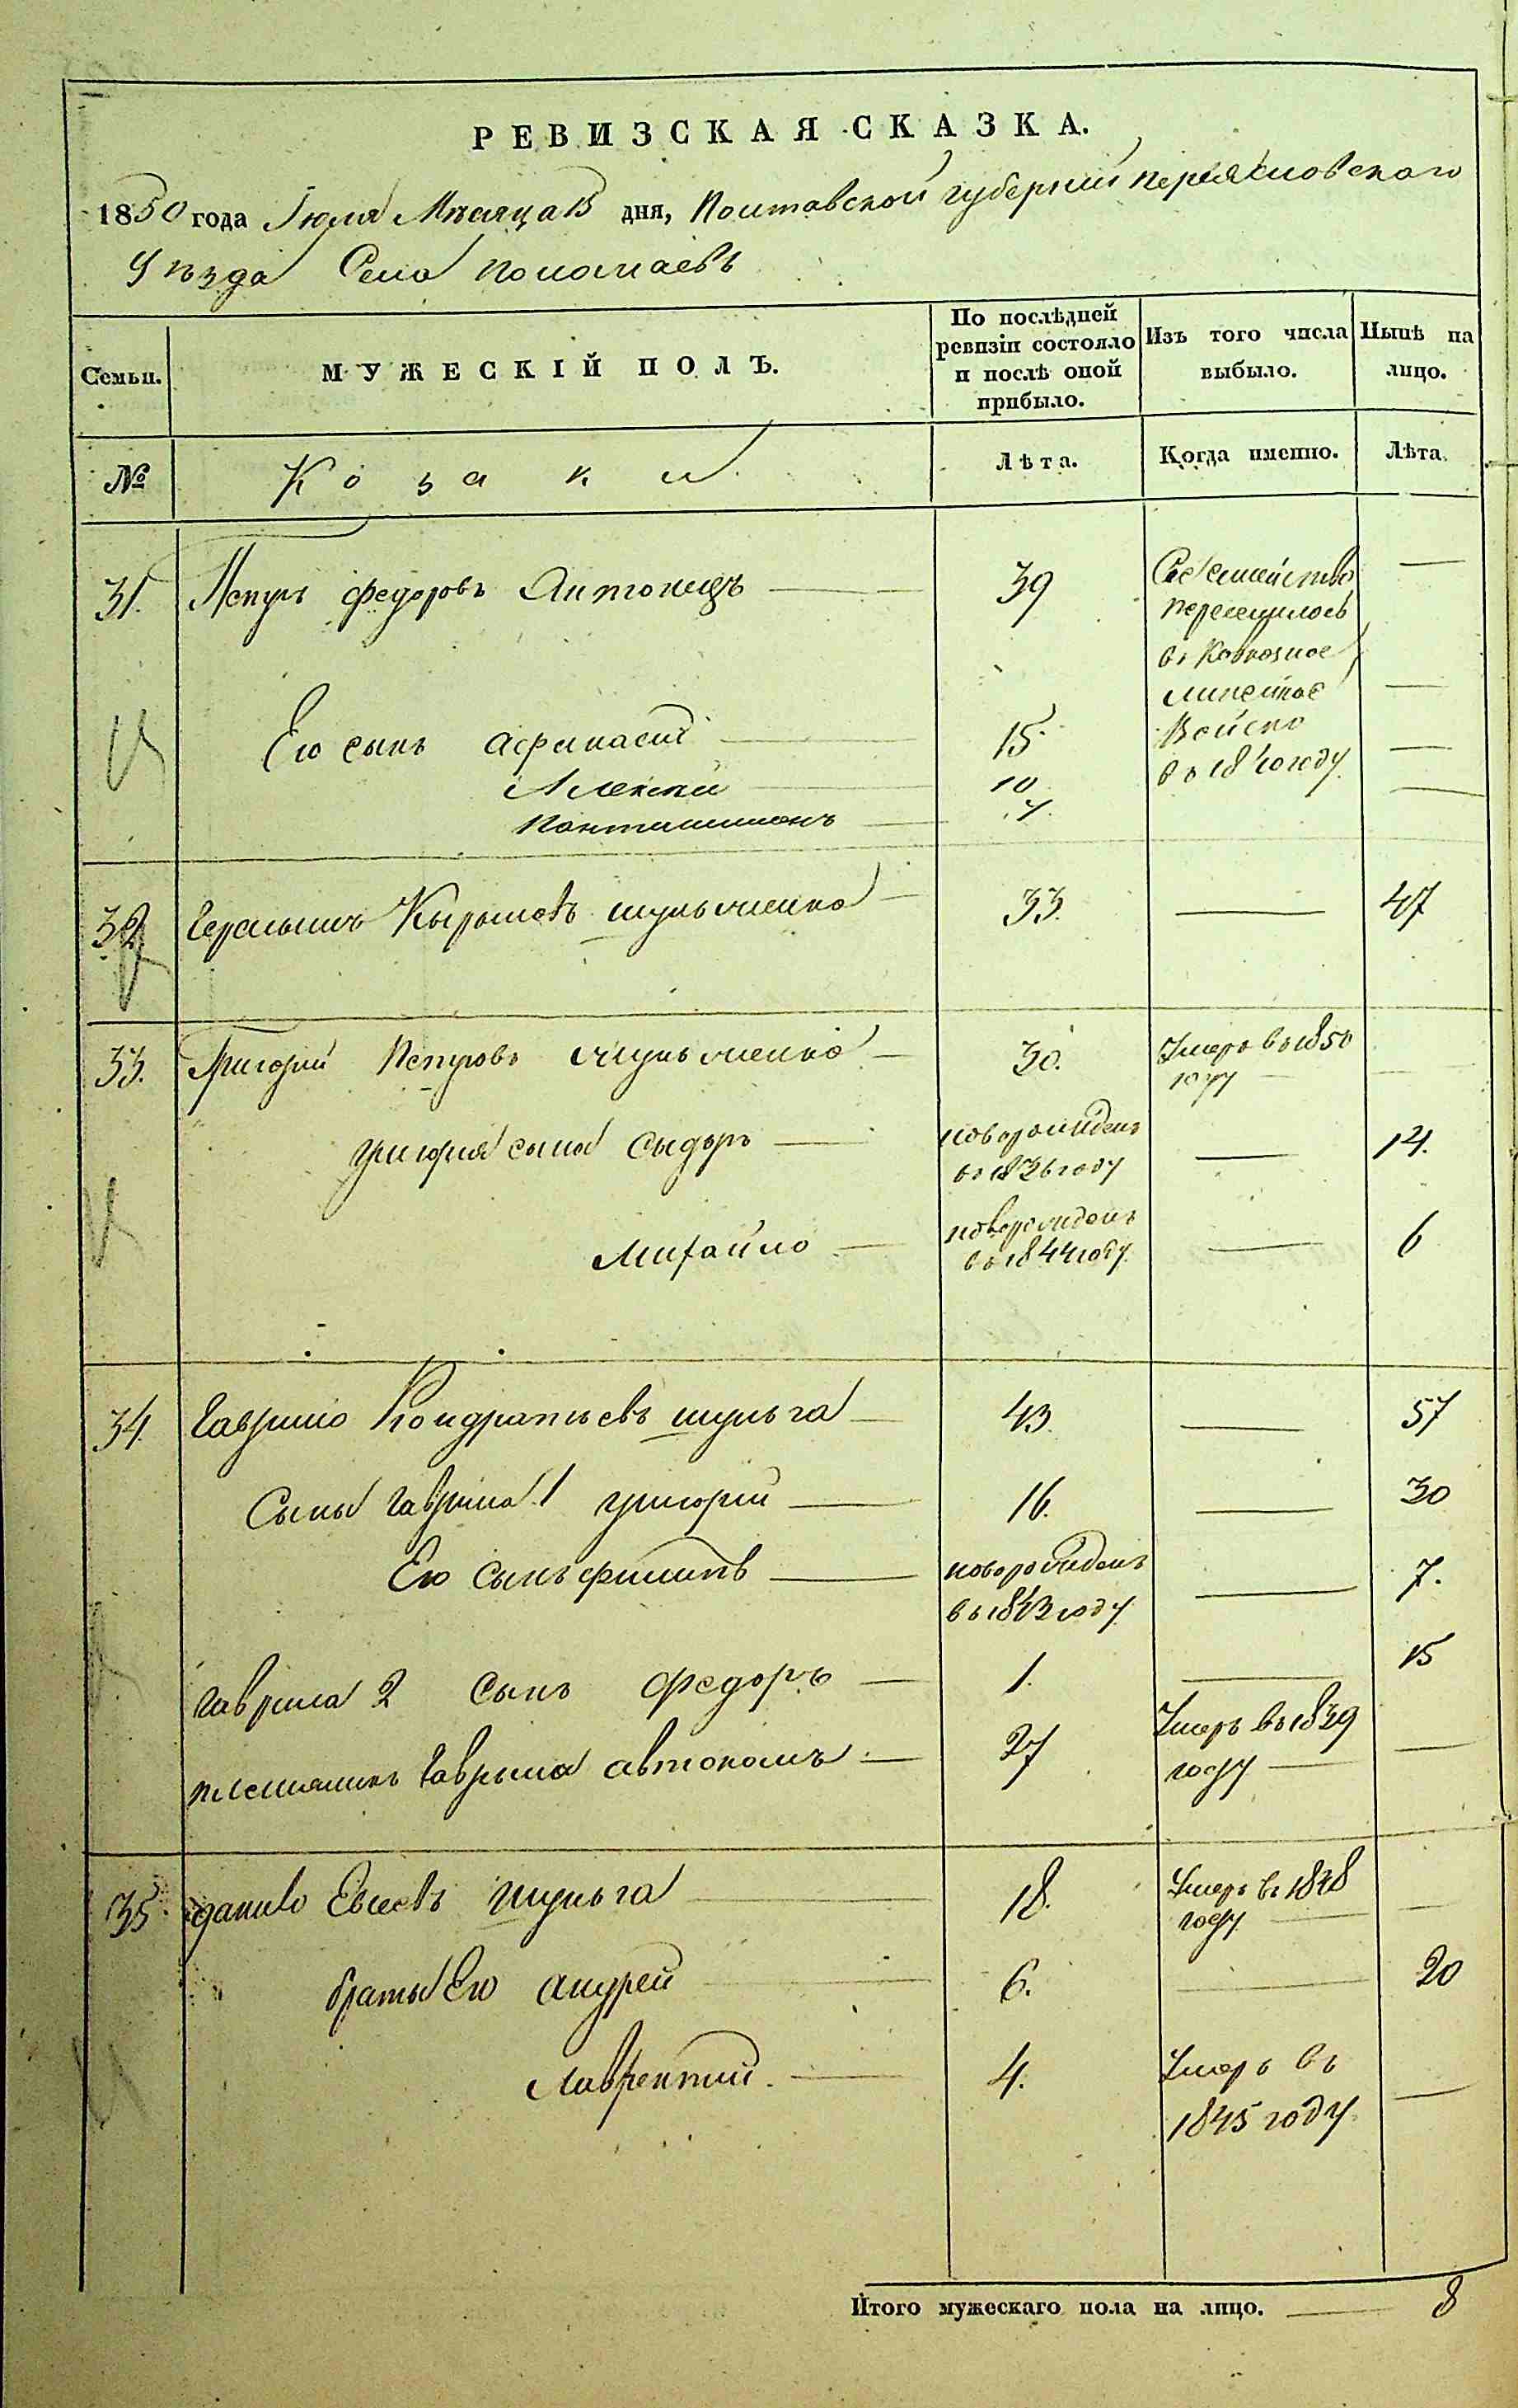 РЕВИЗСКАЯ СКАЗКА.
1850 года Іюля Мѣсяца 15 дня, Полтавской губерніи Переяславского
Уѣзда Села Поломаевъ
Семьи.
МУЖЕСКІЙ ПОЛЪ.
По послѣдней ревизіи состояло и послѣ оной прибыло.
Изъ того числа выбыло.
Нынѣ на лицо.
№
Козаки
Лѣта.
Когда именно.
Лѣта.
31. Петръ федоровъ Антонецъ — 39 —
Все семейство
переселилось
въ Кавказкое
линейное
Войско
въ 1840 году.
Его сынъ афанасій — 15. —
Алексѣй — 10 —
Пантилимонъ — 7. —
32 Герасымъ Кырыловъ шульженко — 33. — 47
33. Григорій Петровъ шульженко — 30. Умеръ въ 1850 —
году —
григорія сыны Сыдоръ — новорожденъ — 14.
въ 1836 году
Михайло — новорожденъ — 6
въ 1844 году.
34. Гаврыло Кондратьевъ шульга — 43. — 57
Сыны гаврыла 1 григорій — 16. — 30
Его сынъ филипъ — новорожденъ — 7.
въ 1843 году.
гаврыла 2 сынъ федоръ — 1. — 15
племянникъ гаврыла автономъ — 27 Умеръ въ 1839 —
году —
35. данило Евсеевъ шульга — 18. Умеръ въ 1848 —
году —
браты Его андрей — 6. — 20
Лаврентий. — 4. Умеръ въ —
1845 году.
Итого мужескаго пола на лицо. — 8